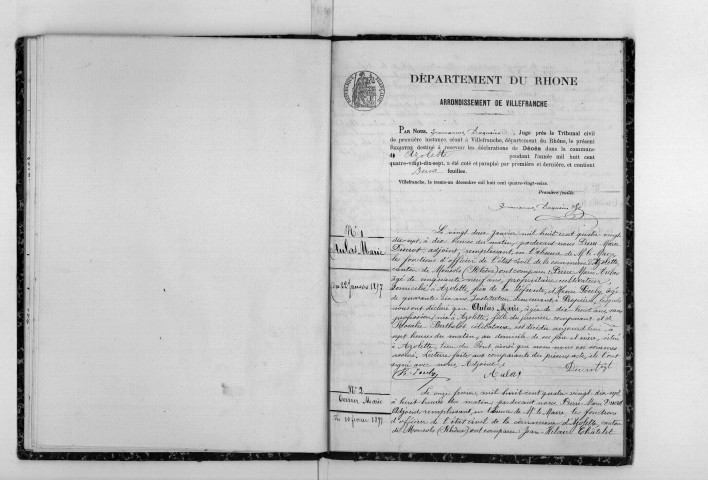 DÉPARTEMENT DU RHONE
ARRONDISSEMENT DE VILLEFRANCHE
PAR NOUS, Juge près le Tribunal civil
de première instance, séant à Villefranche, département du Rhône, le présent
REGISTRE destiné à recevoir les déclarations de Décès dans la commune
d'Azolette pendant l'année mil huit cent
quatre-vingt-dix-sept, a été coté et paraphé par première et dernière, et contient
feuilles.
Villefranche, le trente-un décembre mil huit cent quatre-vingt-seize.
Première feuille.
N° 1
Aulas Marie
du 22 janvier 1897
Le vingt deux janvier mil huit cent quatre vingt
dix sept, à dix heures du matin, pardevant nous Pierre Marie
Ducrot adjoint, remplissant en l'absence de M. le Maire,
les fonctions d'officier de l'état civil de la commune d'Azolette,
canton de Monsols (Rhône) ont comparu: Pierre Marie Aulas
âgé de cinquante-neuf ans, propriétaire cultivateur,
domicilié à Azolette, père de la défunte, et
de quarante six ans, Instituteur demeurant à Propières, lesquels
nous ont déclaré que Aulas Marie, âgée de dix huit ans sans
profession, née à Azolette, fille du premier comparant et de
Berthelot, célibataire, est décédée aujourd'hui à
sept heures du matin, au domicile de ses père et mère, situé
à Azolette, lieu du Pont ainsi que nous nous en sommes
assuré. Lecture faite aux comparants du présent acte, ils l'ont
signé avec nous, Adjoint.
Ducrot
Aulas
N° 2
Marie
Du 10 février 1897
Le onze février mil huit cent quatre vingt dix sept
à huit heures du matin, pardevant nous Pierre Marie Ducrot
Adjoint remplissant, en l'absence de M. le Maire les fonctions
d'officier de l'état civil de la commune d'Azolette, canton
de Monsols (Rhône) ont comparu: Jean Hilaire Châtelet